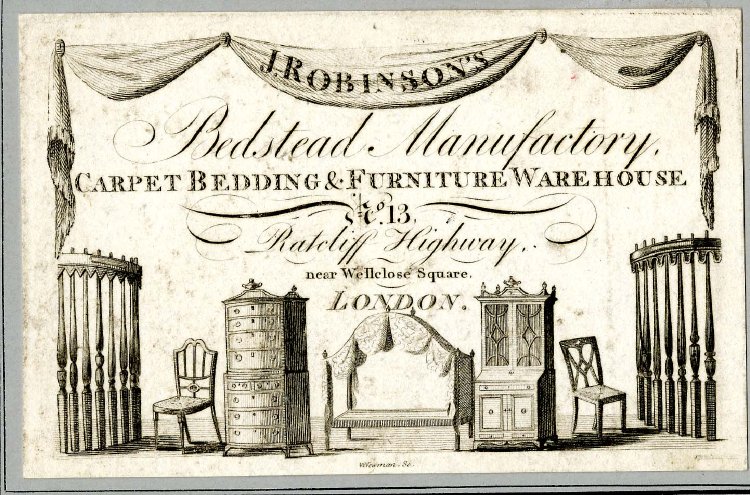 J. ROBINSON'S
Bedstead Manufactory,
CARPET BEDDING & FURNITURE WAREHOUSE
No. 13,
Ratcliff Highway,
near Wellclose Square.
LONDON.
Newman. Sc.